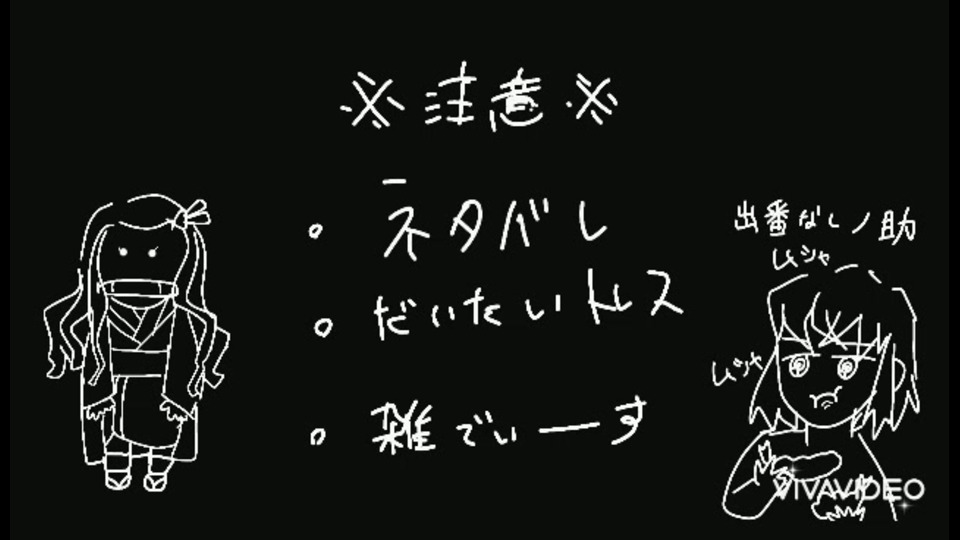 ※注意※
・ネタバレ
・だいたいトレス
・雑でぃーす
出番なしノ助
ムシャ
ムシャ
VIVAVIDEO